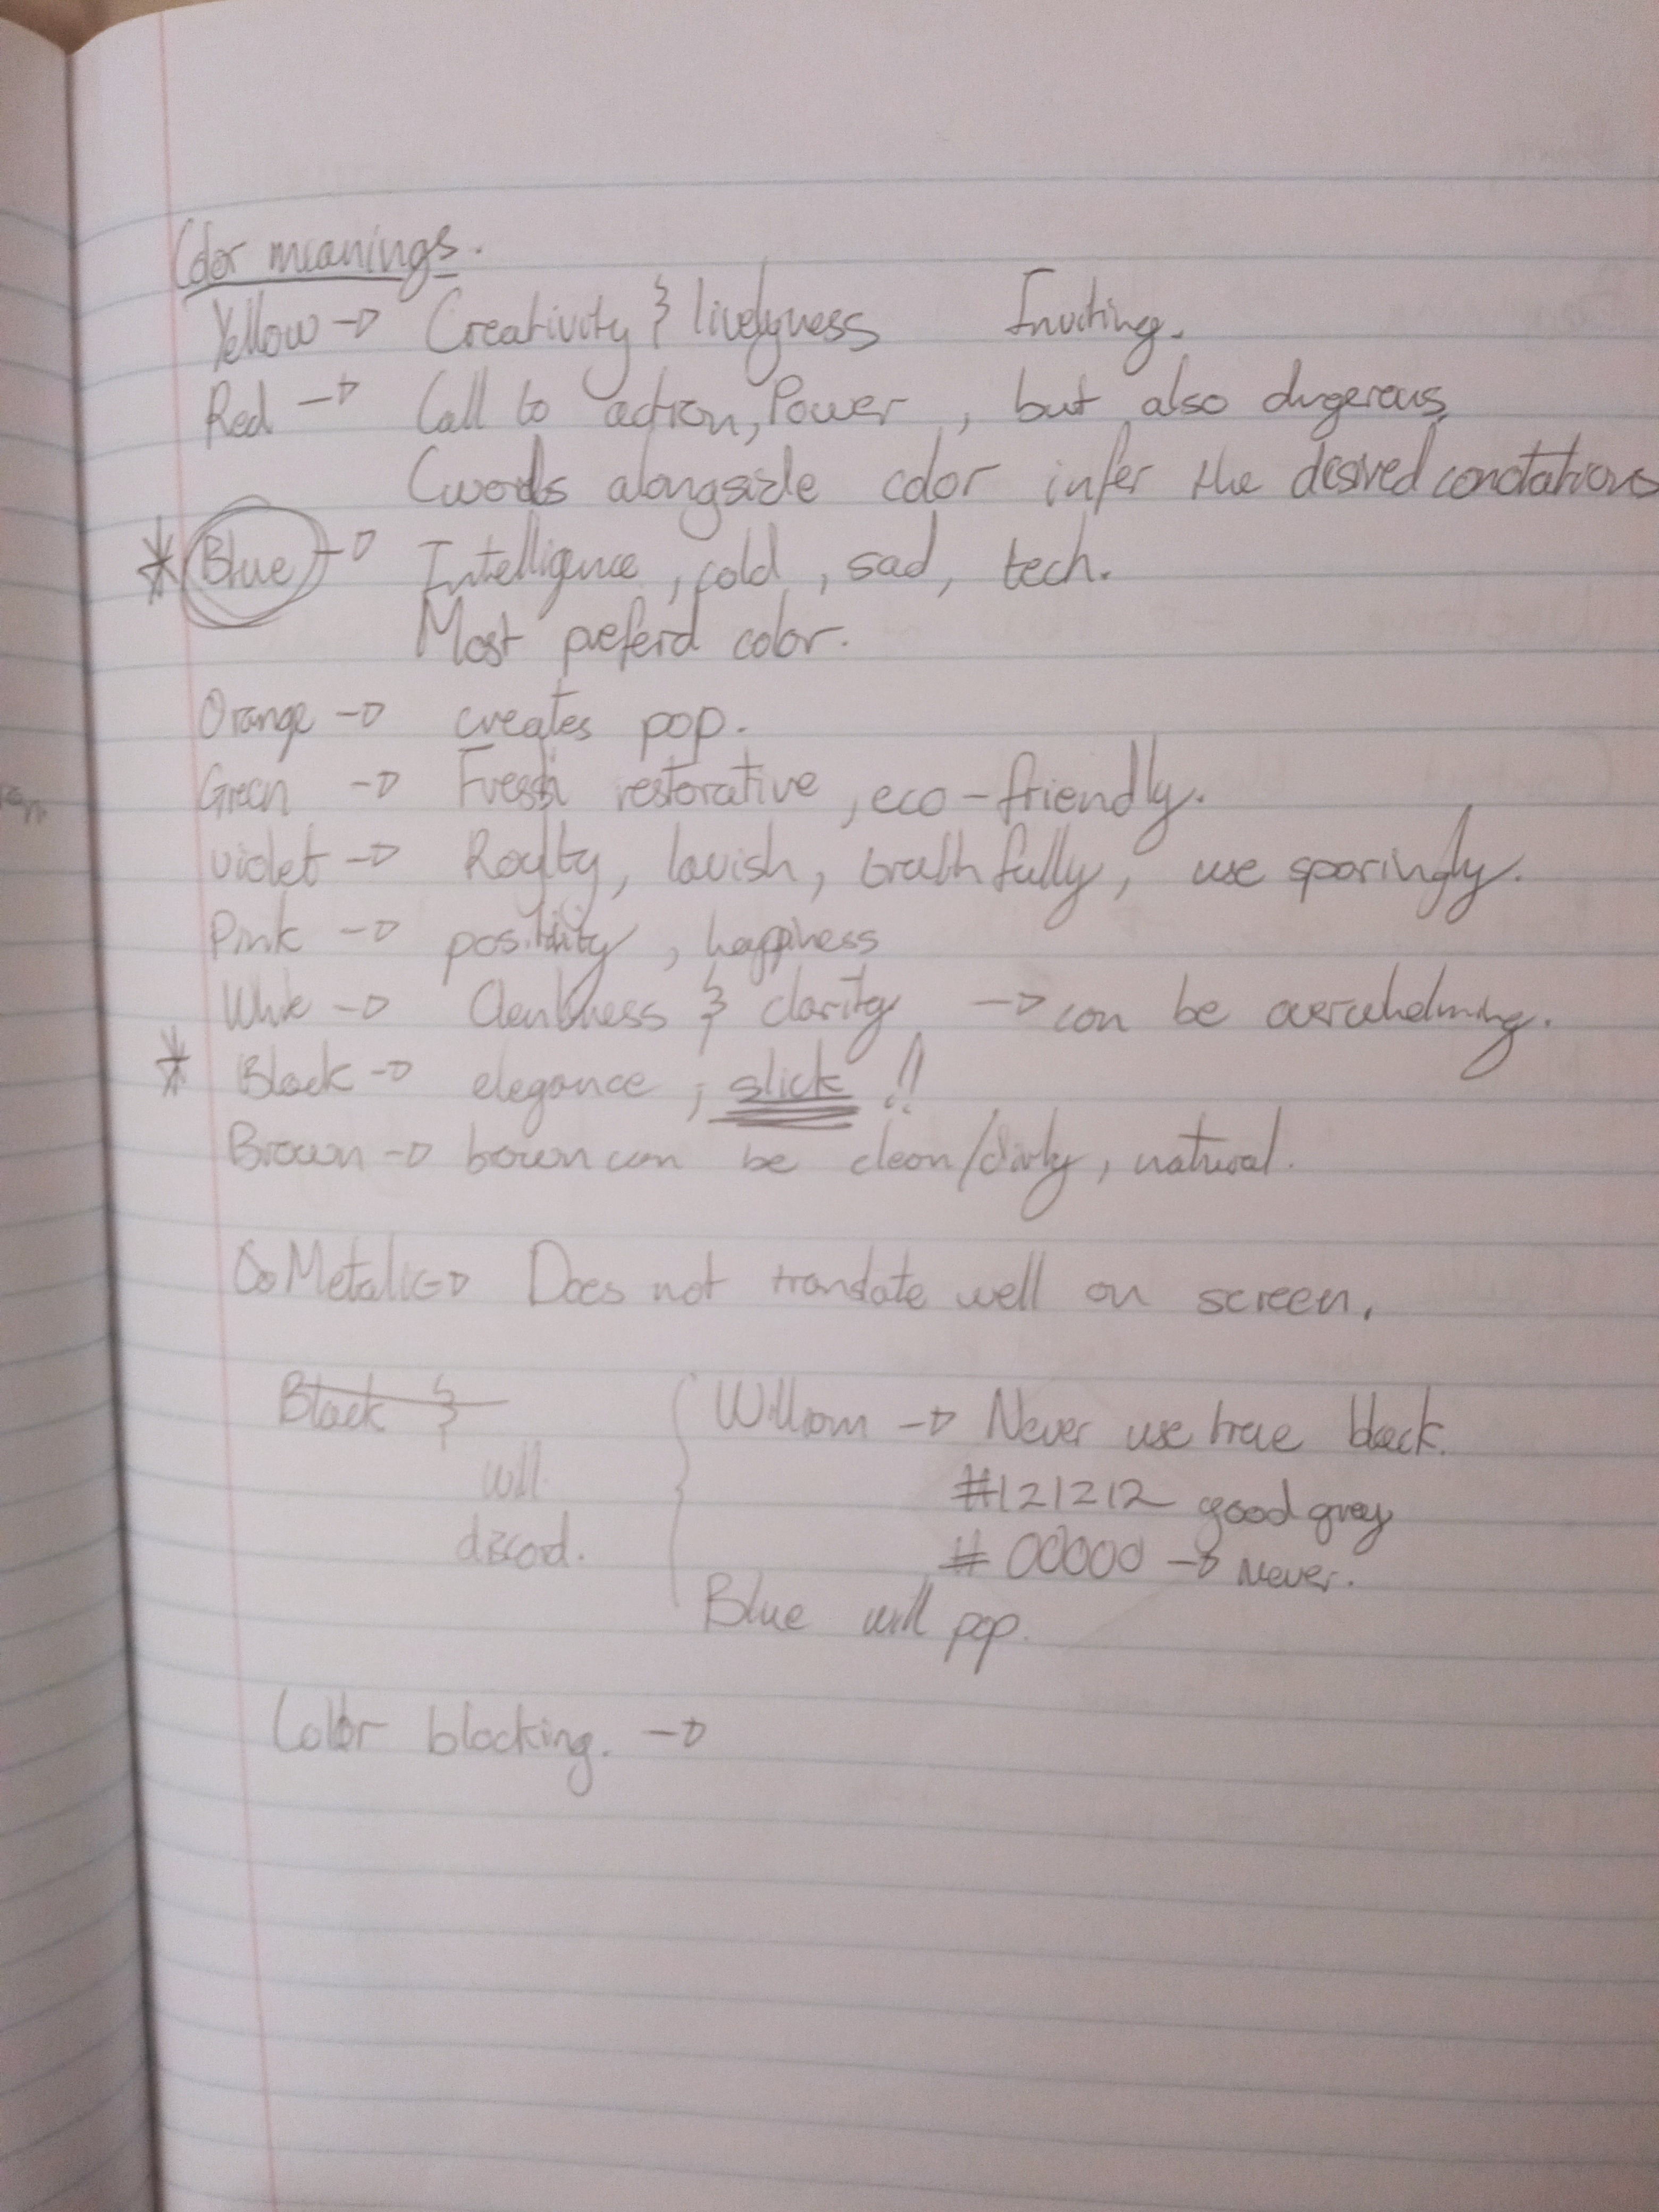 Color meanings.
Yellow → Creativity & livelyness Inviting.
Red → Call to action, Power, but also dngerous,
(words alongside color infer the desired conotations
* Blue → Intelligence, cold, sad, tech.
Most preferd color.
Orange → creates pop.
Green → Fresh restorative, eco-friendly.
violet → Roylty, lavish, truthfully, use sparingly.
Pink → positivity, happiness
White → Clenliness & clarity → can be overwhelming.
* Black → elegance, slick!!
Brown → brown can be clean/dirty, natural.
Metalic → Does not translate well on screen.
Black &
William → Never use true black.
will
#121212 good grey
discord.
#00000 → Never.
Blue will pop.
Color blocking. →